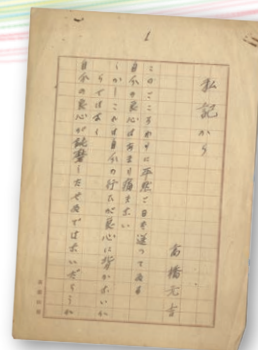 1
私記から
高橋元吉
このごろわりに平然と日を送つてゐる
自分の良心はあまり痛まない
しかしこれは自分の行ひが良心に背かないか
らではなく
自分の良心が麻痺したせゐではないだらうか